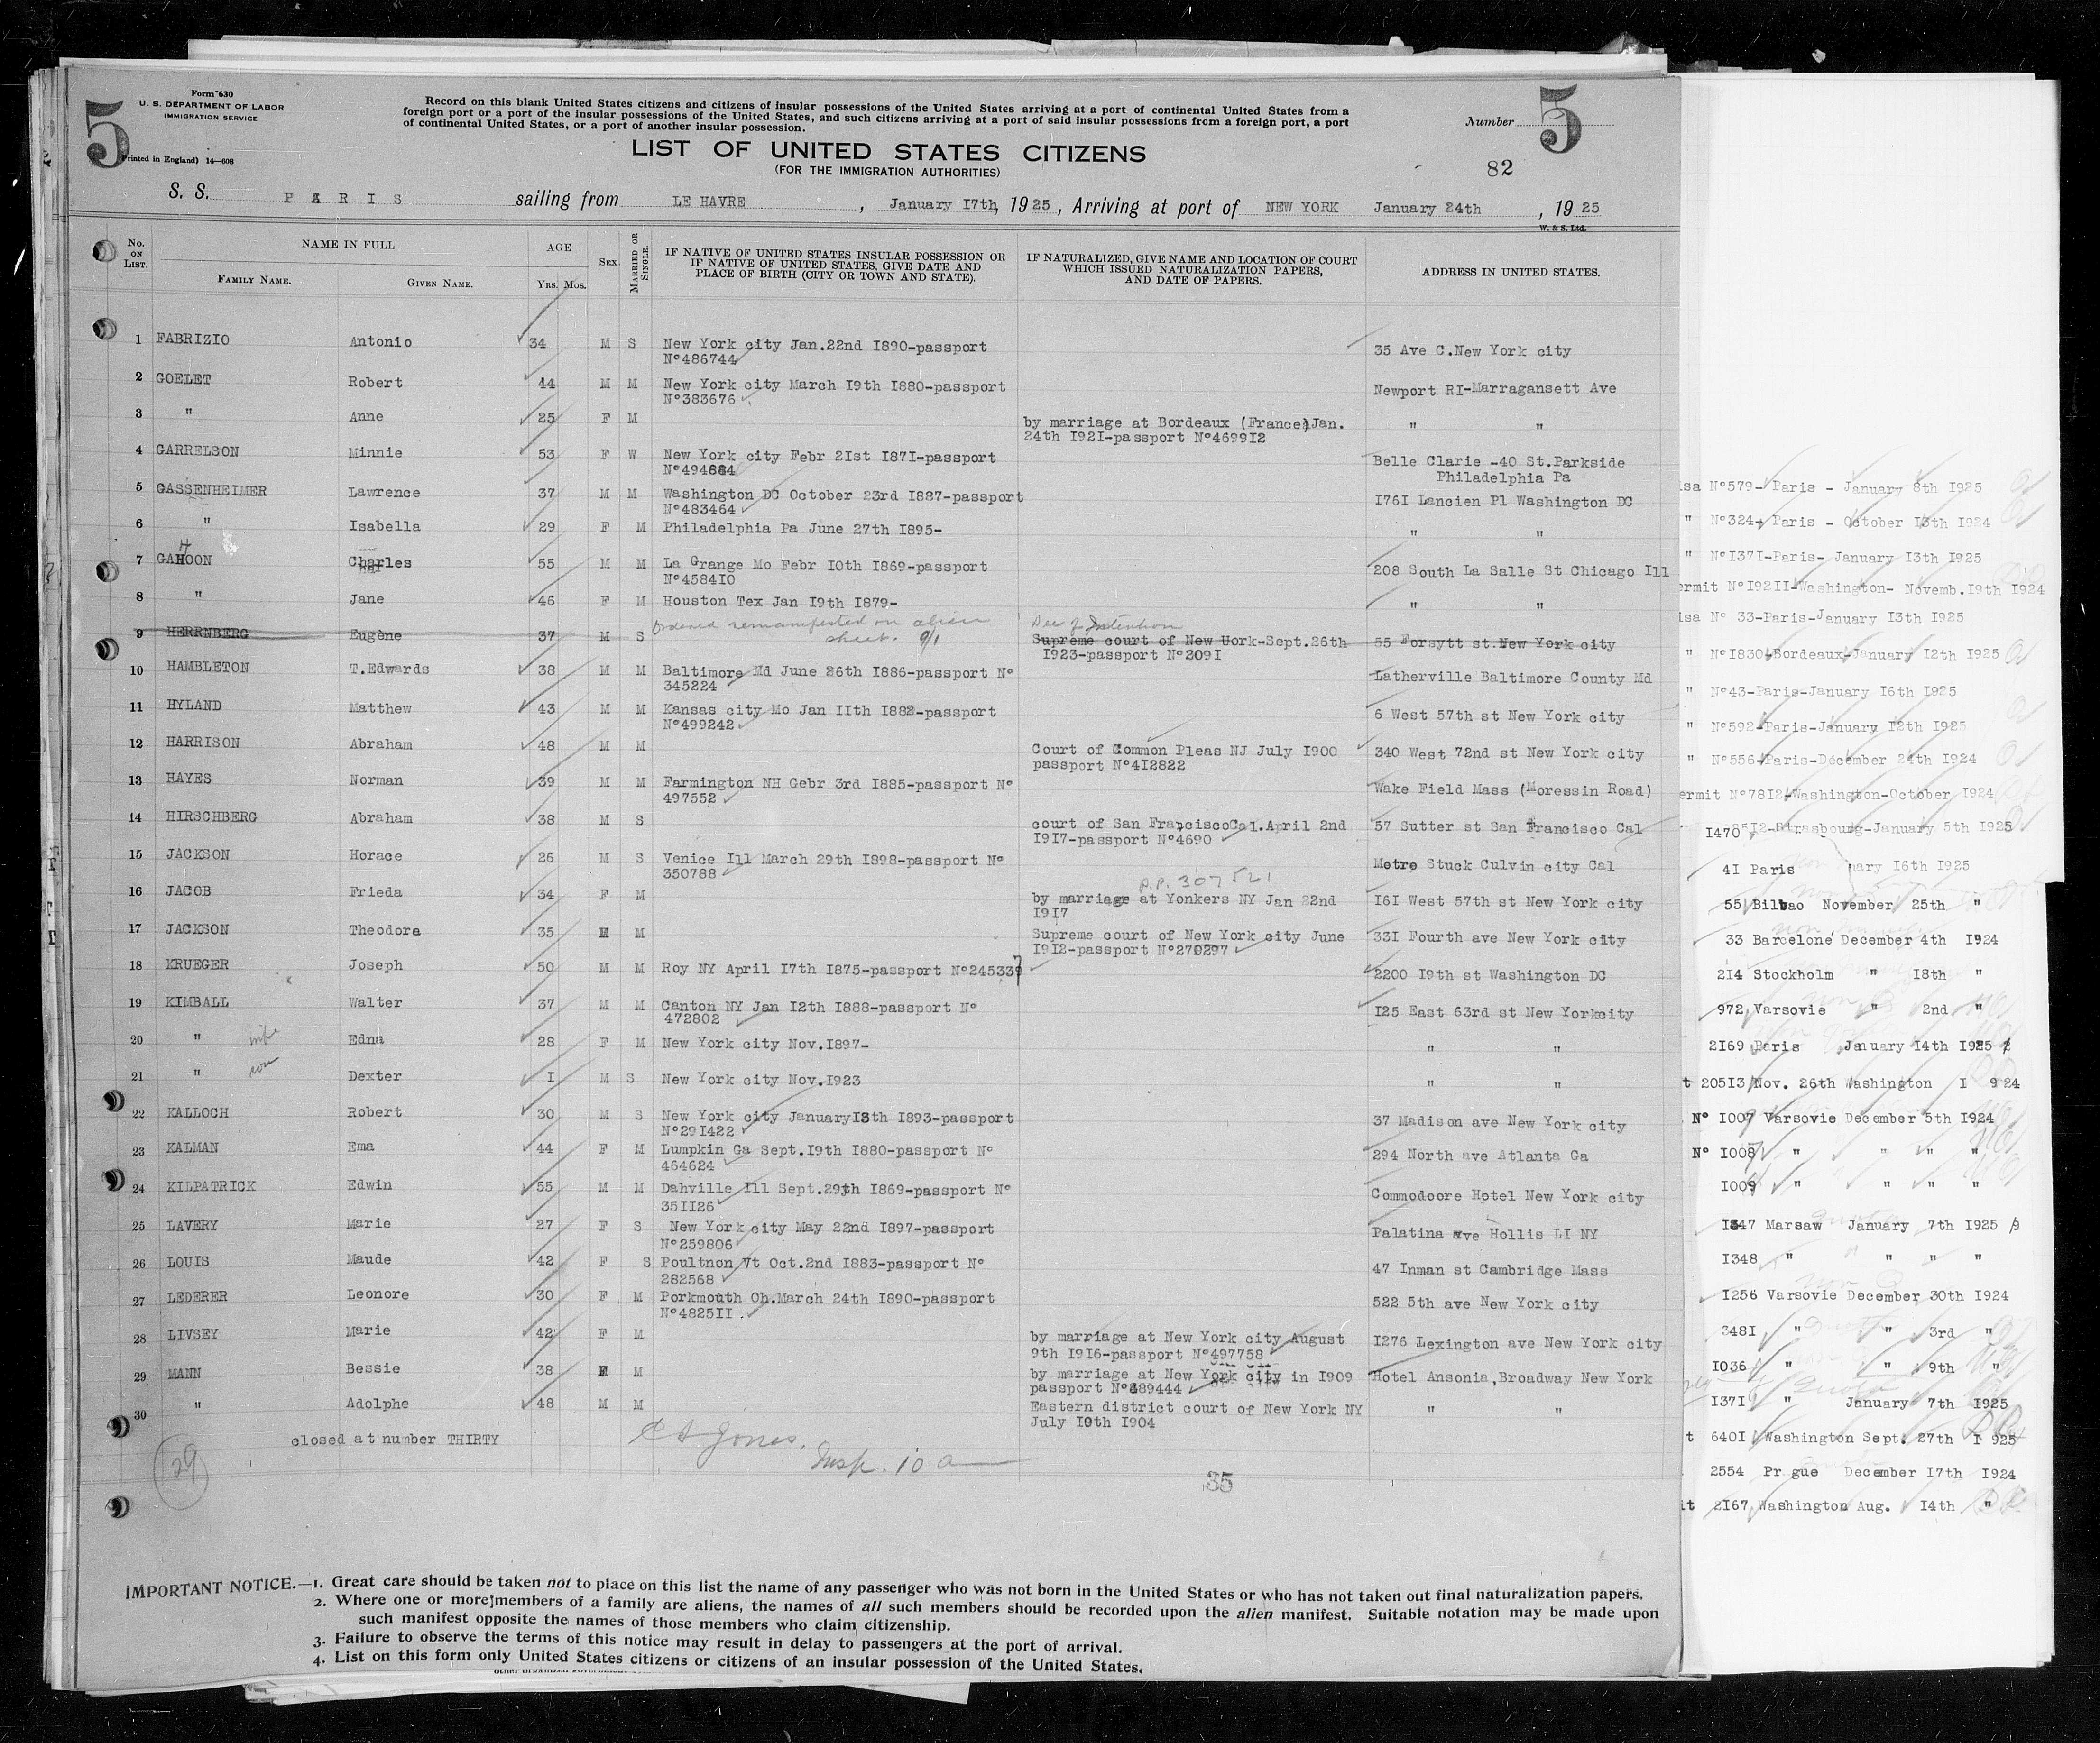 Form 630
U. S. DEPARTMENT OF LABOR
IMMIGRATION SERVICE
5
Printed in England) 14—608
Record on this blank United States citizens and citizens of insular possessions of the United States arriving at a port of continental United States from a
foreign port or a port of the insular possessions of the United States, and such citizens arriving at a port of said insular possessions from a foreign port, a port
of continental United States, or a port of another insular possession.
Number 5
LIST OF UNITED STATES CITIZENS
(FOR THE IMMIGRATION AUTHORITIES)
82
S. S. PARIS sailing from LE HAVRE, January I7th, 1925, Arriving at port of NEW YORK January 24th, 1925
W. & S. Ltd.
No. ON LIST. NAME IN FULL AGE SEX. MARRIED OR SINGLE. IF NATIVE OF UNITED STATES INSULAR POSSESSION OR IF NATIVE OF UNITED STATES, GIVE DATE AND PLACE OF BIRTH (CITY OR TOWN AND STATE). IF NATURALIZED, GIVE NAME AND LOCATION OF COURT WHICH ISSUED NATURALIZATION PAPERS, AND DATE OF PAPERS. ADDRESS IN UNITED STATES.
FAMILY NAME. GIVEN NAME. YRS. MOS.
1 FABRIZIO Antonio 34 M S New York city Jan.22nd I890-passport 35 Ave C.New York city
N°486744
2 GOELET Robert 44 M M New York city March I9th I880-passport Newport RI-Marragansett Ave
N°383676
3 " Anne 25 F M by marriage at Bordeaux (France)Jan. " "
24th I92I-passport N°4699I2
4 GARRELSON Minnie 53 F W New York city Febr 2Ist I87I-passport Belle Clarie -40 St.Parkside
N°494684 Philadelphia Pa
5 GASSENHEIMER Lawrence 37 M M Washington DC October 23rd I887-passport I76I Lancien Pl Washington DC
N°483464
6 " Isabella 29 F M Philadelphia Pa June 27th I895- " "
7 GAHOON Charles 55 M M La Grange Mo Febr I0th I869-passport 208 South La Salle St Chicago Ill
N°4584I0
8 " Jane 46 F M Houston Tex Jan I9th I879- " "
Ordered remanifested on alien Dec of Intention
9 HERRNBERG Eugène 37 M S sheet. 9/1 Supreme court of New Uork-Sept.26th 55 Forsytt st.New York city
I923-passport N°209I
10 HAMBLETON T.Edwards 38 M M Baltimore Md June 26th I886-passport N° Latherville Baltimore County Md
345224
11 HYLAND Matthew 43 M M Kansas city Mo Jan IIth I882-passport 6 West 57th st New York city
N°499242
12 HARRISON Abraham 48 M M Court of Common Pleas NJ July I900 340 West 72nd st New York city
passport N°4I2822
13 HAYES Norman 39 M M Farmington NH Gebr 3rd I885-passport N° Wake Field Mass (Moressin Road)
497552
14 HIRSCHBERG Abraham 38 M S court of San FranciscoCal.April 2nd 57 Sutter st San Francisco Cal
I9I7-passport N°4690
15 JACKSON Horace 26 M S Venice Ill March 29th I898-passport N° Metre Stuck Culvin city Cal
350788
P.P. 307521
16 JACOB Frieda 34 F M by marriage at Yonkers NY Jan 22nd I6I West 57th st New York city
I9I7
17 JACKSON Theodora 35 F M Supreme court of New York city June 33I Fourth ave New York city
I9I2-passport N°270297
18 KRUEGER Joseph 50 M M Roy NY April I7th I875-passport N°245337 2200 I9th st Washington DC
19 KIMBALL Walter 37 M M Canton NY Jan I2th I888-passport N° I25 East 63rd st New Yorkcity
472802
20 " wife Edna 28 F M New York city Nov.I897- " "
21 " son Dexter I M S New York city Nov.I923 " "
22 KALLOCH Robert 30 M S New York city JanuaryI3th I893-passport 37 Madison ave New York city
N°29I422
23 KALMAN Ema 44 F M Lumpkin Ga Sept.I9th I880-passport N° 294 North ave Atlanta Ga
464624
24 KILPATRICK Edwin 55 M M Dahville Ill Sept.29th I869-passport N° Commodoore Hotel New York city
35II26
25 LAVERY Marie 27 F S New York city May 22nd I897-passport Palatina ave Hollis LI NY
N°259806
26 LOUIS Maude 42 F S Poultnon Vt Oct.2nd I883-passport N° 47 Inman st Cambridge Mass
282568
27 LEDERER Leonore 30 F M Porkmouth Oh.March 24th I890-passport 522 5th ave New York city
N°4825II.
28 LIVSEY Marie 42 F M by marriage at New York city August I276 Lexington ave New York city
9th I9I6-passport N°497758
29 MANN Bessie 38 F M by marriage at New York city in I909 Hotel Ansonia,Broadway New York
passport N°689444
30 " Adolphe 48 M M Eastern district court of New York NY " "
July I0th I904
closed at number THIRTY
29
C A Jones.
Insp. 10 a
35
IMPORTANT NOTICE.—1. Great care should be taken not to place on this list the name of any passenger who was not born in the United States or who has not taken out final naturalization papers.
2. Where one or more members of a family are aliens, the names of all such members should be recorded upon the alien manifest. Suitable notation may be made upon
such manifest opposite the names of those members who claim citizenship.
3. Failure to observe the terms of this notice may result in delay to passengers at the port of arrival.
4. List on this form only United States citizens or citizens of an insular possession of the United States.
isa N°579- Paris - January 8th I925
" N°324- Paris - October I3th I924
" N°I37I-Paris- January I3th I925
ermit N°I92II-Washington- Novemb.I9th I924
isa N° 33-Paris-January I3th I925
" N°I830-Bordeaux-January I2th I925
" N°43-Paris-January I6th I925
" N°592-Paris-January I2th I925
" N°556-Paris-Décember 24th I924
ermit N°78I2-Washington-October I924
I470 85I2-Strasbourg-January 5th I925
4I Paris uary I6th I925
55 Bilbao November 25th "
33 Barcelone December 4th I924
2I4 Stockholm " I8th "
972 Varsovie " 2nd "
2I69 Paris January I4th I925
t 205I3 Nov. 26th Washington I 924
N° I007 Varsovie December 5th I924
N° I008 " " " "
I009 " " " "
I347 Marsaw January 7th I925
I348 " " " "
I256 Varsovie December 30th I924
348I " " 3rd "
I036 " " 9th "
I37I " January 7th I925
t 640I Washington Sept. 27th I 925
2554 Pr gue December I7th I924
it 2I67 Washington Aug. I4th "